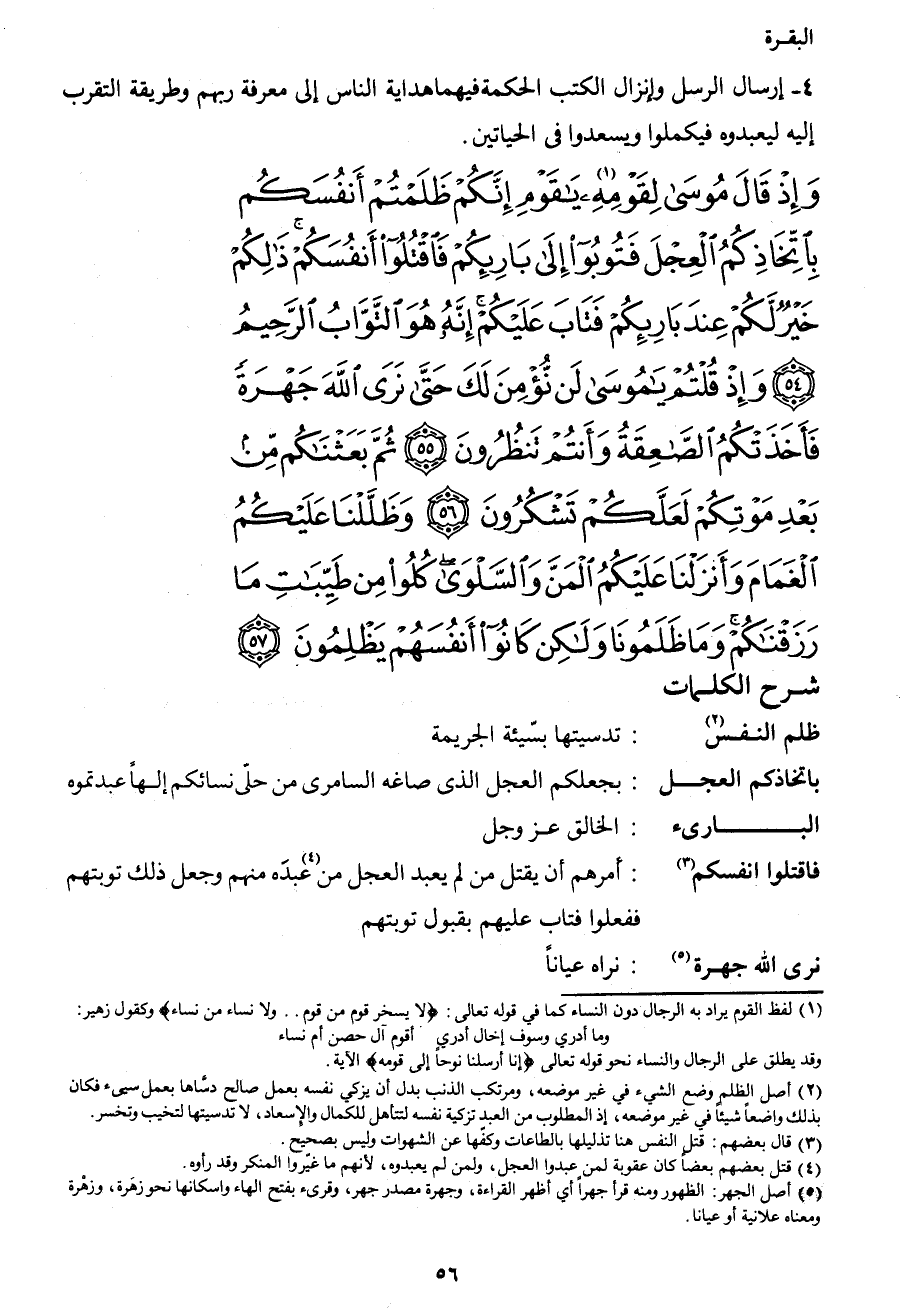 البقـرة
٤ـ إرسال الرسل وإنزال الكتب الحكمة فيهما هداية الناس إلى معرفة ربهم وطريقة التقرب
إليه ليعبدوه فيكملوا ويسعدوا فى الحياتين.
وَإِذْ قَالَ مُوسَىٰ لِقَوْمِهِۦ(١) يَـٰقَوْمِ إِنَّكُمْ ظَلَمْتُمْ أَنفُسَكُم
بِٱتِّخَاذِكُمُ ٱلْعِجْلَ فَتُوبُوٓا۟ إِلَىٰ بَارِئِكُمْ فَٱقْتُلُوٓا۟ أَنفُسَكُمْ ۚ ذَٰلِكُمْ
خَيْرٌ لَّكُمْ عِندَ بَارِئِكُمْ فَتَابَ عَلَيْكُمْ ۚ إِنَّهُۥ هُوَ ٱلتَّوَّابُ ٱلرَّحِيمُ
٥٤ وَإِذْ قُلْتُمْ يَـٰمُوسَىٰ لَن نُّؤْمِنَ لَكَ حَتَّىٰ نَرَى ٱللَّهَ جَهْرَةً
فَأَخَذَتْكُمُ ٱلصَّـٰعِقَةُ وَأَنتُمْ تَنظُرُونَ ٥٥ ثُمَّ بَعَثْنَـٰكُم مِّنۢ
بَعْدِ مَوْتِكُمْ لَعَلَّكُمْ تَشْكُرُونَ ٥٦ وَظَلَّلْنَا عَلَيْكُمُ
ٱلْغَمَامَ وَأَنزَلْنَا عَلَيْكُمُ ٱلْمَنَّ وَٱلسَّلْوَىٰ ۖ كُلُوا۟ مِن طَيِّبَـٰتِ مَا
رَزَقْنَـٰكُمْ ۚ وَمَا ظَلَمُونَا وَلَـٰكِن كَانُوٓا۟ أَنفُسَهُمْ يَظْلِمُونَ ٥٧
شـرح الكلـمات
ظلم النـفـس(٢) : تدسيتها بسّيئة الجريمة
باتخاذكم العجـــل : بجعلكم العجل الذى صاغه السامرى من حلّى نسائكم إلـهاً عبدتموه
البـــــــــارىء : الخالق عـز وجل
فاقتلوا انفسكم(٣) : أمرهم أن يقتل من لم يعبد العجل من(٤) عَبدَه منهم وجعل ذلك توبتهم
ففعلوا فتاب عليهم بقبول توبتهم
نرى الله جهـرة(٥) : نراه عياناً
(١) لفظ القوم يراد به الرجال دون النساء كما في قوله تعالى: ﴿لا يسخر قوم من قوم.. ولا نساء من نساء﴾ وكقول زهير:
وما أدري وسوف إخال أدري أقوم آل حصن أم نساء
وقد يطلق على الرجال والنساء نحو قوله تعالى ﴿إنا أرسلنا نوحاً إلى قومه﴾ الآية.
(٢) أصل الظلم وضع الشيء في غير موضعه، ومرتكب الذنب بدل أن يزكي نفسه بعمل صالح دسَّاها بعمل سيىء فكان
بذلك واضعاً شيئاً في غير موضعه، إذ المطلوب من العبد تزكية نفسه لتتأهل للكمال والإسعاد، لا تدسيتها لتخيب وتخسر.
(٣) قال بعضهم: قتل النفس هنا تذليلها بالطاعات وكفّها عن الشهوات وليس بصحيح.
(٤) قتل بعضهم بعضاً كان عقوبة لمن عبدوا العجل، ولمن لم يعبدوه، لأنهم ما غيّروا المنكر وقد رأوه.
(٥) أصل الجهر: الظهور ومنه قرأ جهراً أي أظهر القراءة، وجهرة مصدر جهر، وقرىء بفتح الهاء واسكانها نحو زهَرة، وزهْرة
ومعناه علانية أو عيانا.
٥٦